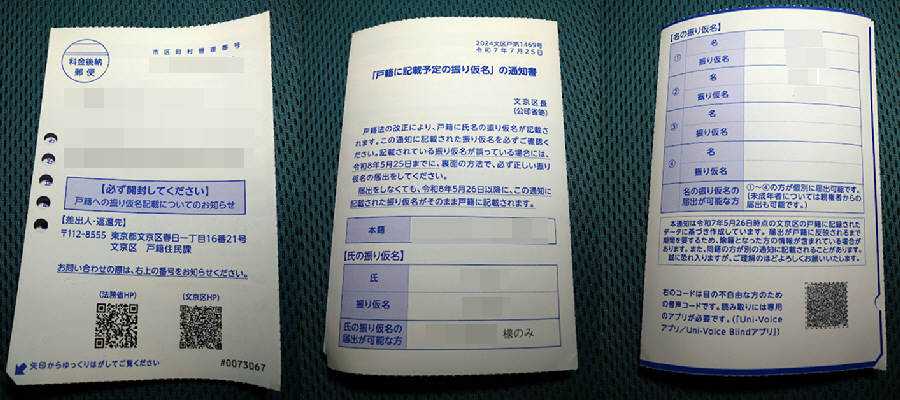 市区町村管理番号
料金後納
郵便
【必ず開封してください】
戸籍への振り仮名記載についてのお知らせ
【差出人・返還先】
〒112-8555 東京都文京区春日一丁目16番21号
文京区 戸籍住民課
お問い合わせの際は、右上の番号をお知らせください。
(法務省HP)
(文京区HP)
矢印からゆっくりはがしてご覧ください
#0073067
2024文区戸第1469号
令和7年7月25日
「戸籍に記載予定の振り仮名」の通知書
文京区長
(公印省略)
戸籍法の改正により、戸籍に氏名の振り仮名が記載さ
れます。この通知に記載された振り仮名を必ずご確認く
ださい。記載されている振り仮名が誤っている場合には、
令和8年5月25日までに、裏面の方法で、必ず正しい振り
仮名の届出をしてください。
届出をしなくても、令和8年5月26日以降に、この通知に
記載された振り仮名がそのまま戸籍に記載されます。
本籍
【氏の振り仮名】
氏
振り仮名
氏の振り仮名の
届出が可能な方
様のみ
【名の振り仮名】
① 名
振り仮名
② 名
振り仮名
③ 名
振り仮名
④ 名
振り仮名
名の振り仮名の
届出が可能な方
①～④の方が個別に届出可能です。
(未成年者については親権者からの
届出も可能です。)
本通知は令和7年5月26日時点の文京区の戸籍に記録された
データに基づき作成しています。届出が戸籍に反映されるまで
期間を要するため、除籍となった方の情報が含まれている場合が
あります。また、同籍の方が別の通知に記載されることがあります。
誠に恐れ入りますが、ご理解のほどよろしくお願いいたします。
右のコードは目の不自由な方のため
の音声コードです。読み取りには専用
のアプリが必要です。(「Uni-Voice
アプリ/Uni-Voice Blindアプリ」)